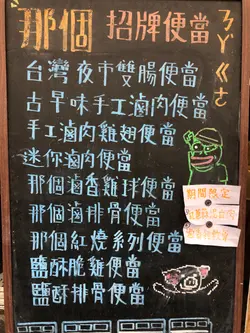 那個 招牌便當
ㄋㄚˋㄍㄜ
台灣夜市雙腸便當
古早味手工滷肉便當
手工滷肉雞翅便當
迷你滷肉便當
那個滷香雞球便當
那個滷排骨便當
那個紅燒系列便當
鹽酥脆雞便當
鹽酥排骨便當
期間限定